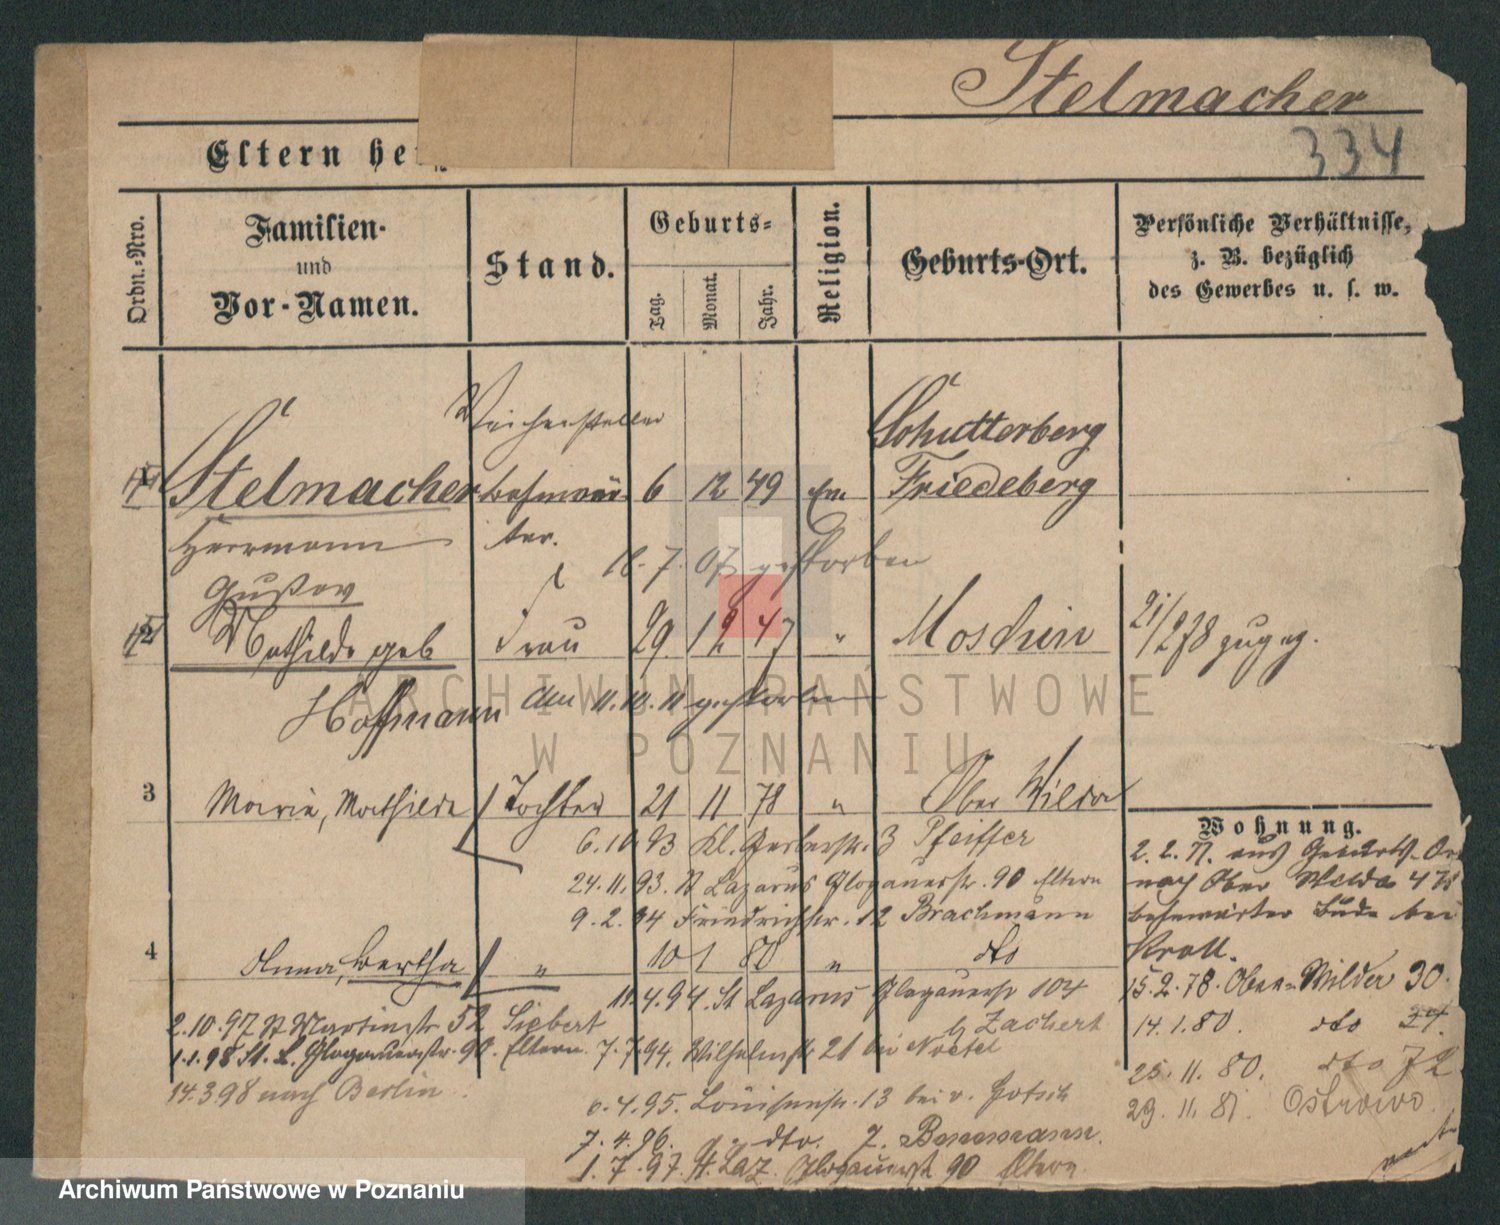 Stelmacher
334
Eltern hei
Ordn.-Nro.
Familien-
und
Vor-Namen.
Stand.
Geburts-
Tag.
Monat.
Jahr.
Religion.
Geburts-Ort.
Persönliche Verhältnisse,
z. B. bezüglich
des Gewerbes u. s. w.
Weichensteller
Schutterberg
1 Stelmacher Bahnwär- 6 12 49 Ev. Friedeberg
Herrmann ter.
18. 7. 07 gestorben
Gustav
2 Mathilde geb Frau 29. 12 47 " Moschin 21/2 78 zugez.
Hoffmann am 11.10.11 gestorben
3 Marie, Mathilde Tochter 21 11 78 " Ober Wilda
Wohnung.
6.10.93 Kl. Gerberstr. 3 Pfeiffer
2. 2. 77. aus Geburts-Or
24.11.93. St Lazarus Glogauerstr. 90 Eltern
nach Ober Wilda 4 78
9. 2. 94 Friedrichstr. 12 Brachmann
Bahnwärter Bude bei
Kroll.
4 Anna, Bertha " 10 1 80 " dto
15.2.78. Ober-Wilda 30.
11.4.94. St Lazarus Glogauerstr 104
b/ Zachert
2.10.97 St Martinstr 52 Siebert
14.1.80. dto 27.
1.1.98 St. L. Glogauerstr. 90. Eltern. 7.7.94. Wilhelmstr 21 bei Noetel
25. 11. 80. dto 72
14.3.98 nach Berlin.
6.4.95. Louisenstr. 13 bei v. Gotsch
29. 11. 81. Ostrowo
7. 4. 96. dto. 7. Bennemann.
1. 7. 97. St. Laz. Glogauerstr 90 Eltern
ARCHIWUM PAŃSTWOWE
W POZNANIU
Archiwum Państwowe w Poznaniu